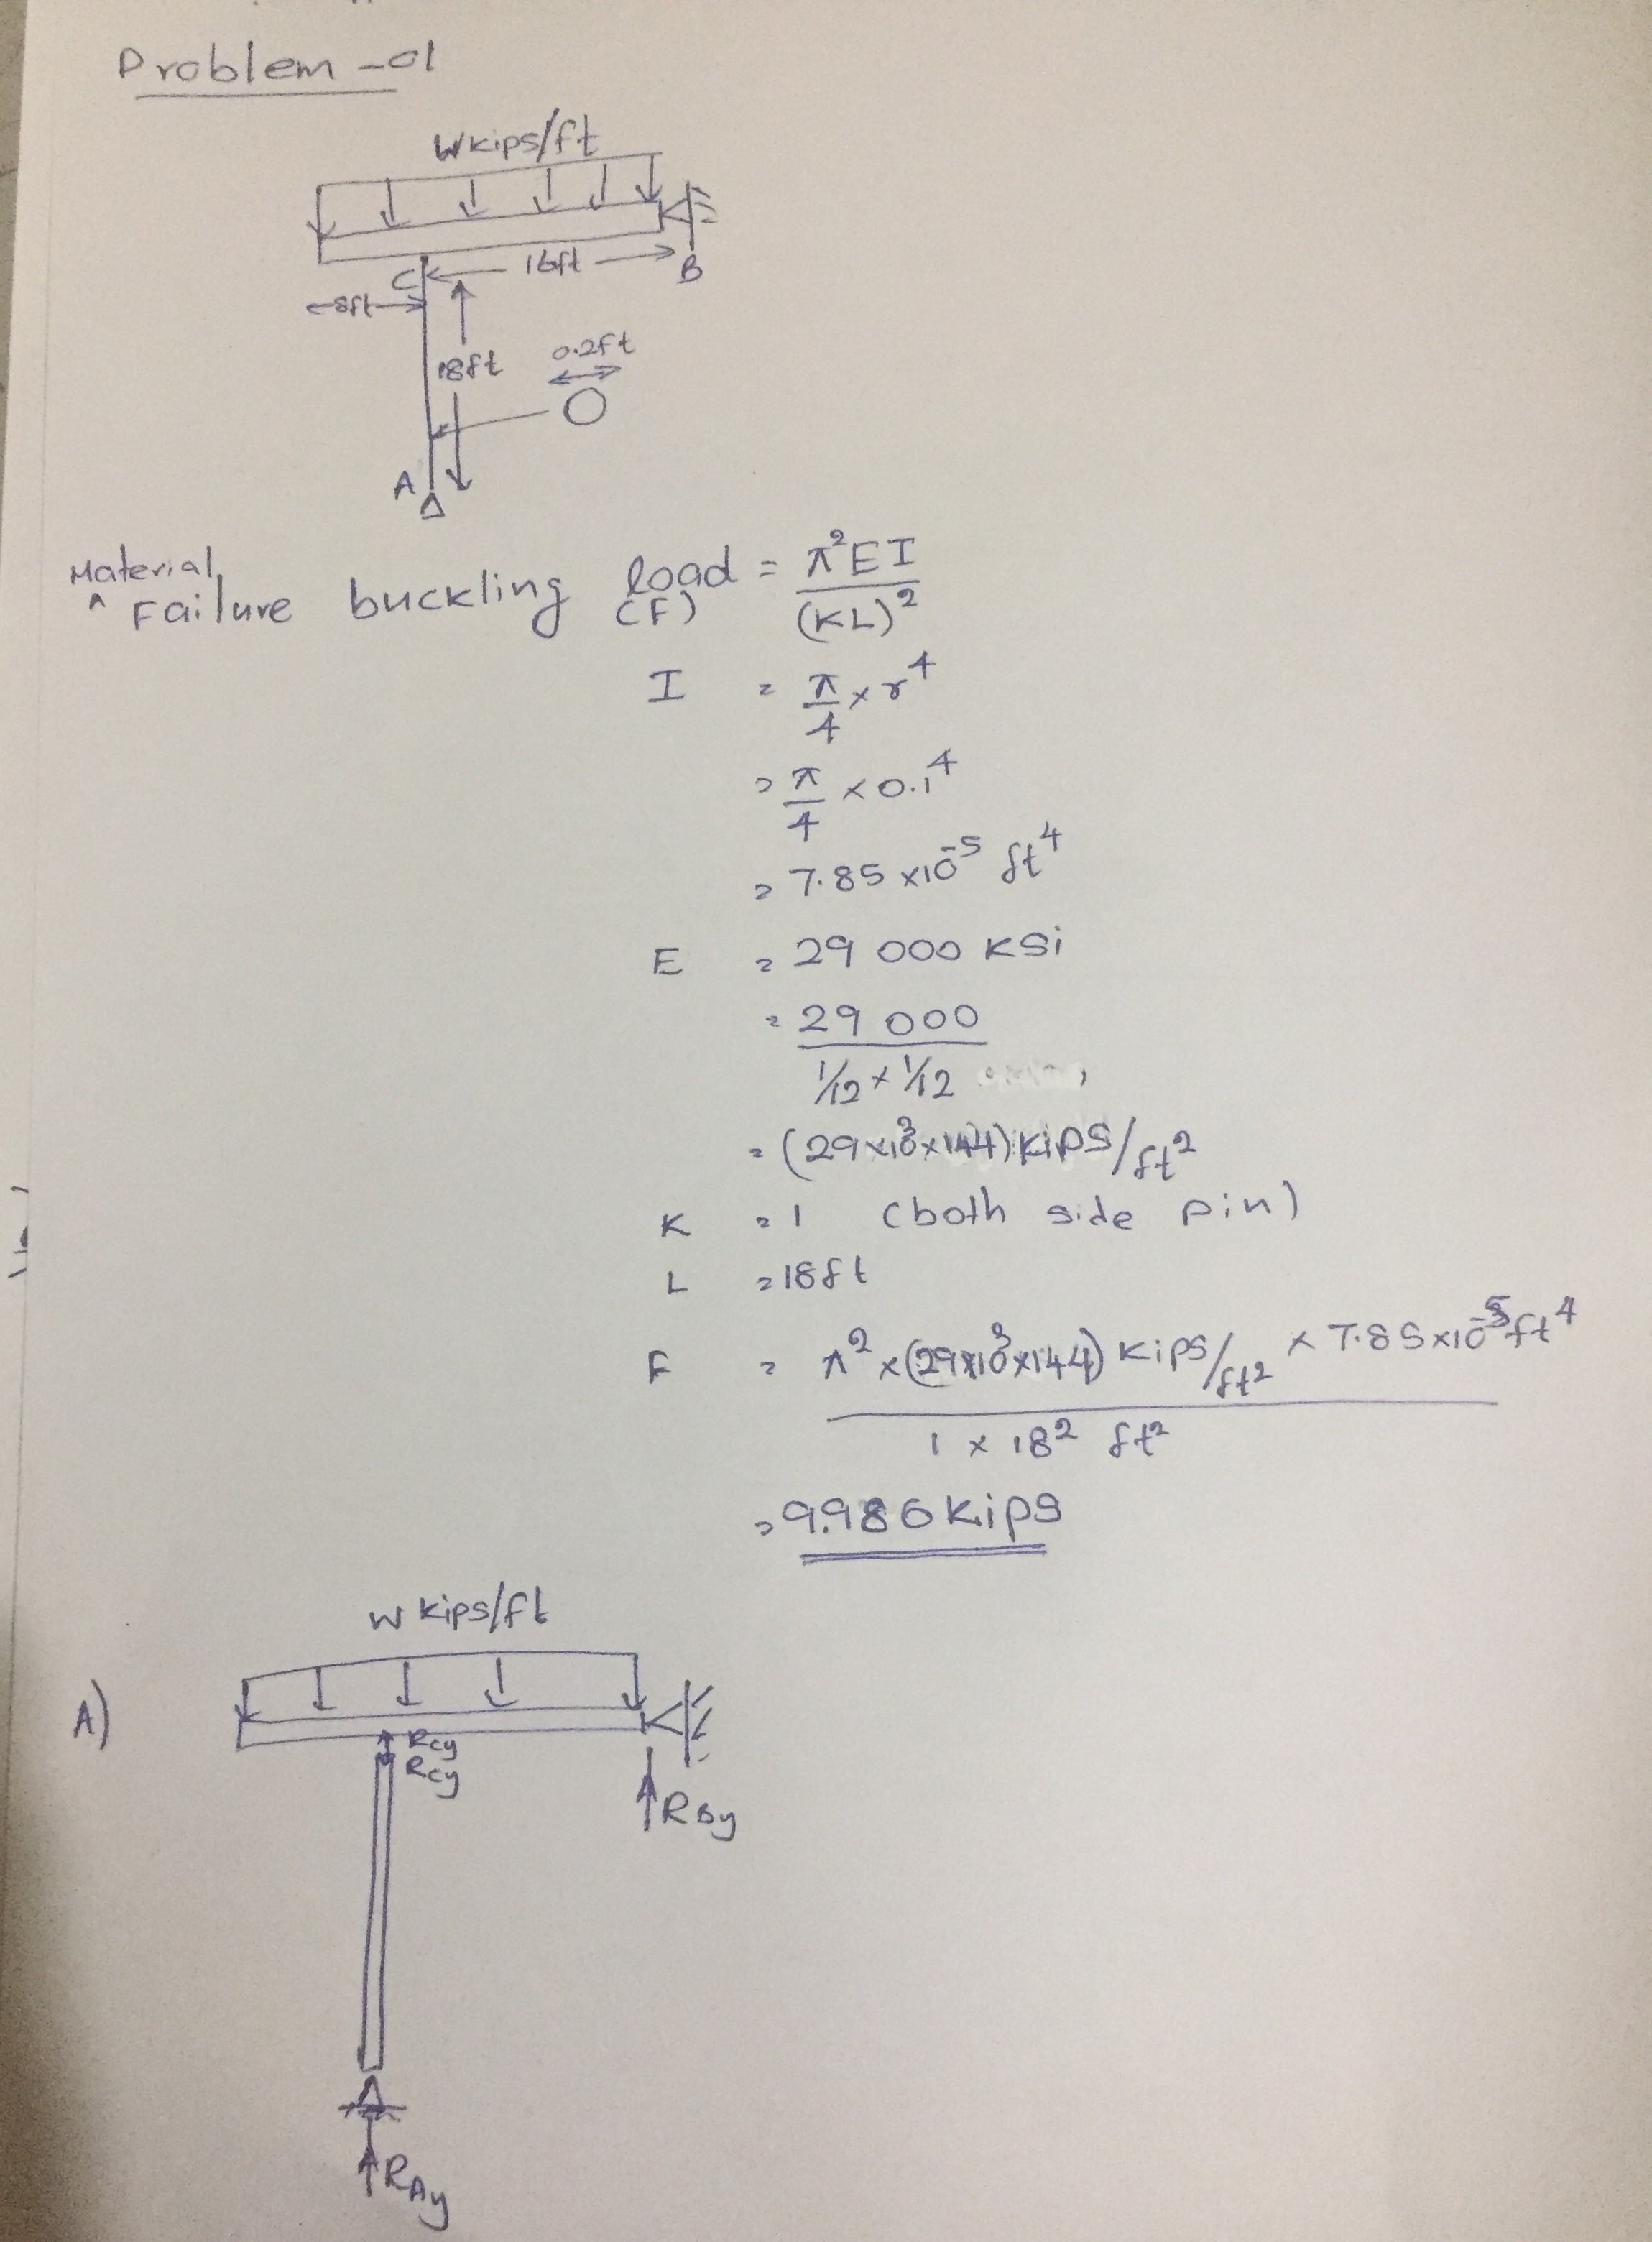 Problem -01
W kips/ft
C
16ft
B
8ft
18ft
0.2ft
A
Material
^ Failure buckling load = π²EI / (KL)²
(F)
I = π/4 × r⁴
= π/4 × 0.1⁴
= 7.85 ×10⁻⁵ ft⁴
E = 29 000 KSi
= 29 000 / 1/12 × 1/12
= (29×10³×144) kips/ft²
K = 1 (both side pin)
L = 18ft
F = π² × (29×10³×144) kips/ft² × 7.85×10⁻⁵ ft⁴ / 1 × 18² ft²
= 9.986 kips
W kips/ft
A)
Rcy
Rcy
RBy
RAy